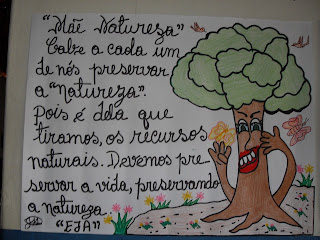 "Mãe Natureza"
Cabe a cada um
de nós preservar
a "Natureza".
Pois é dela que
tiramos, os recursos
naturais. Devemos pre-
servar a vida, preservando
a natureza
"EJA"